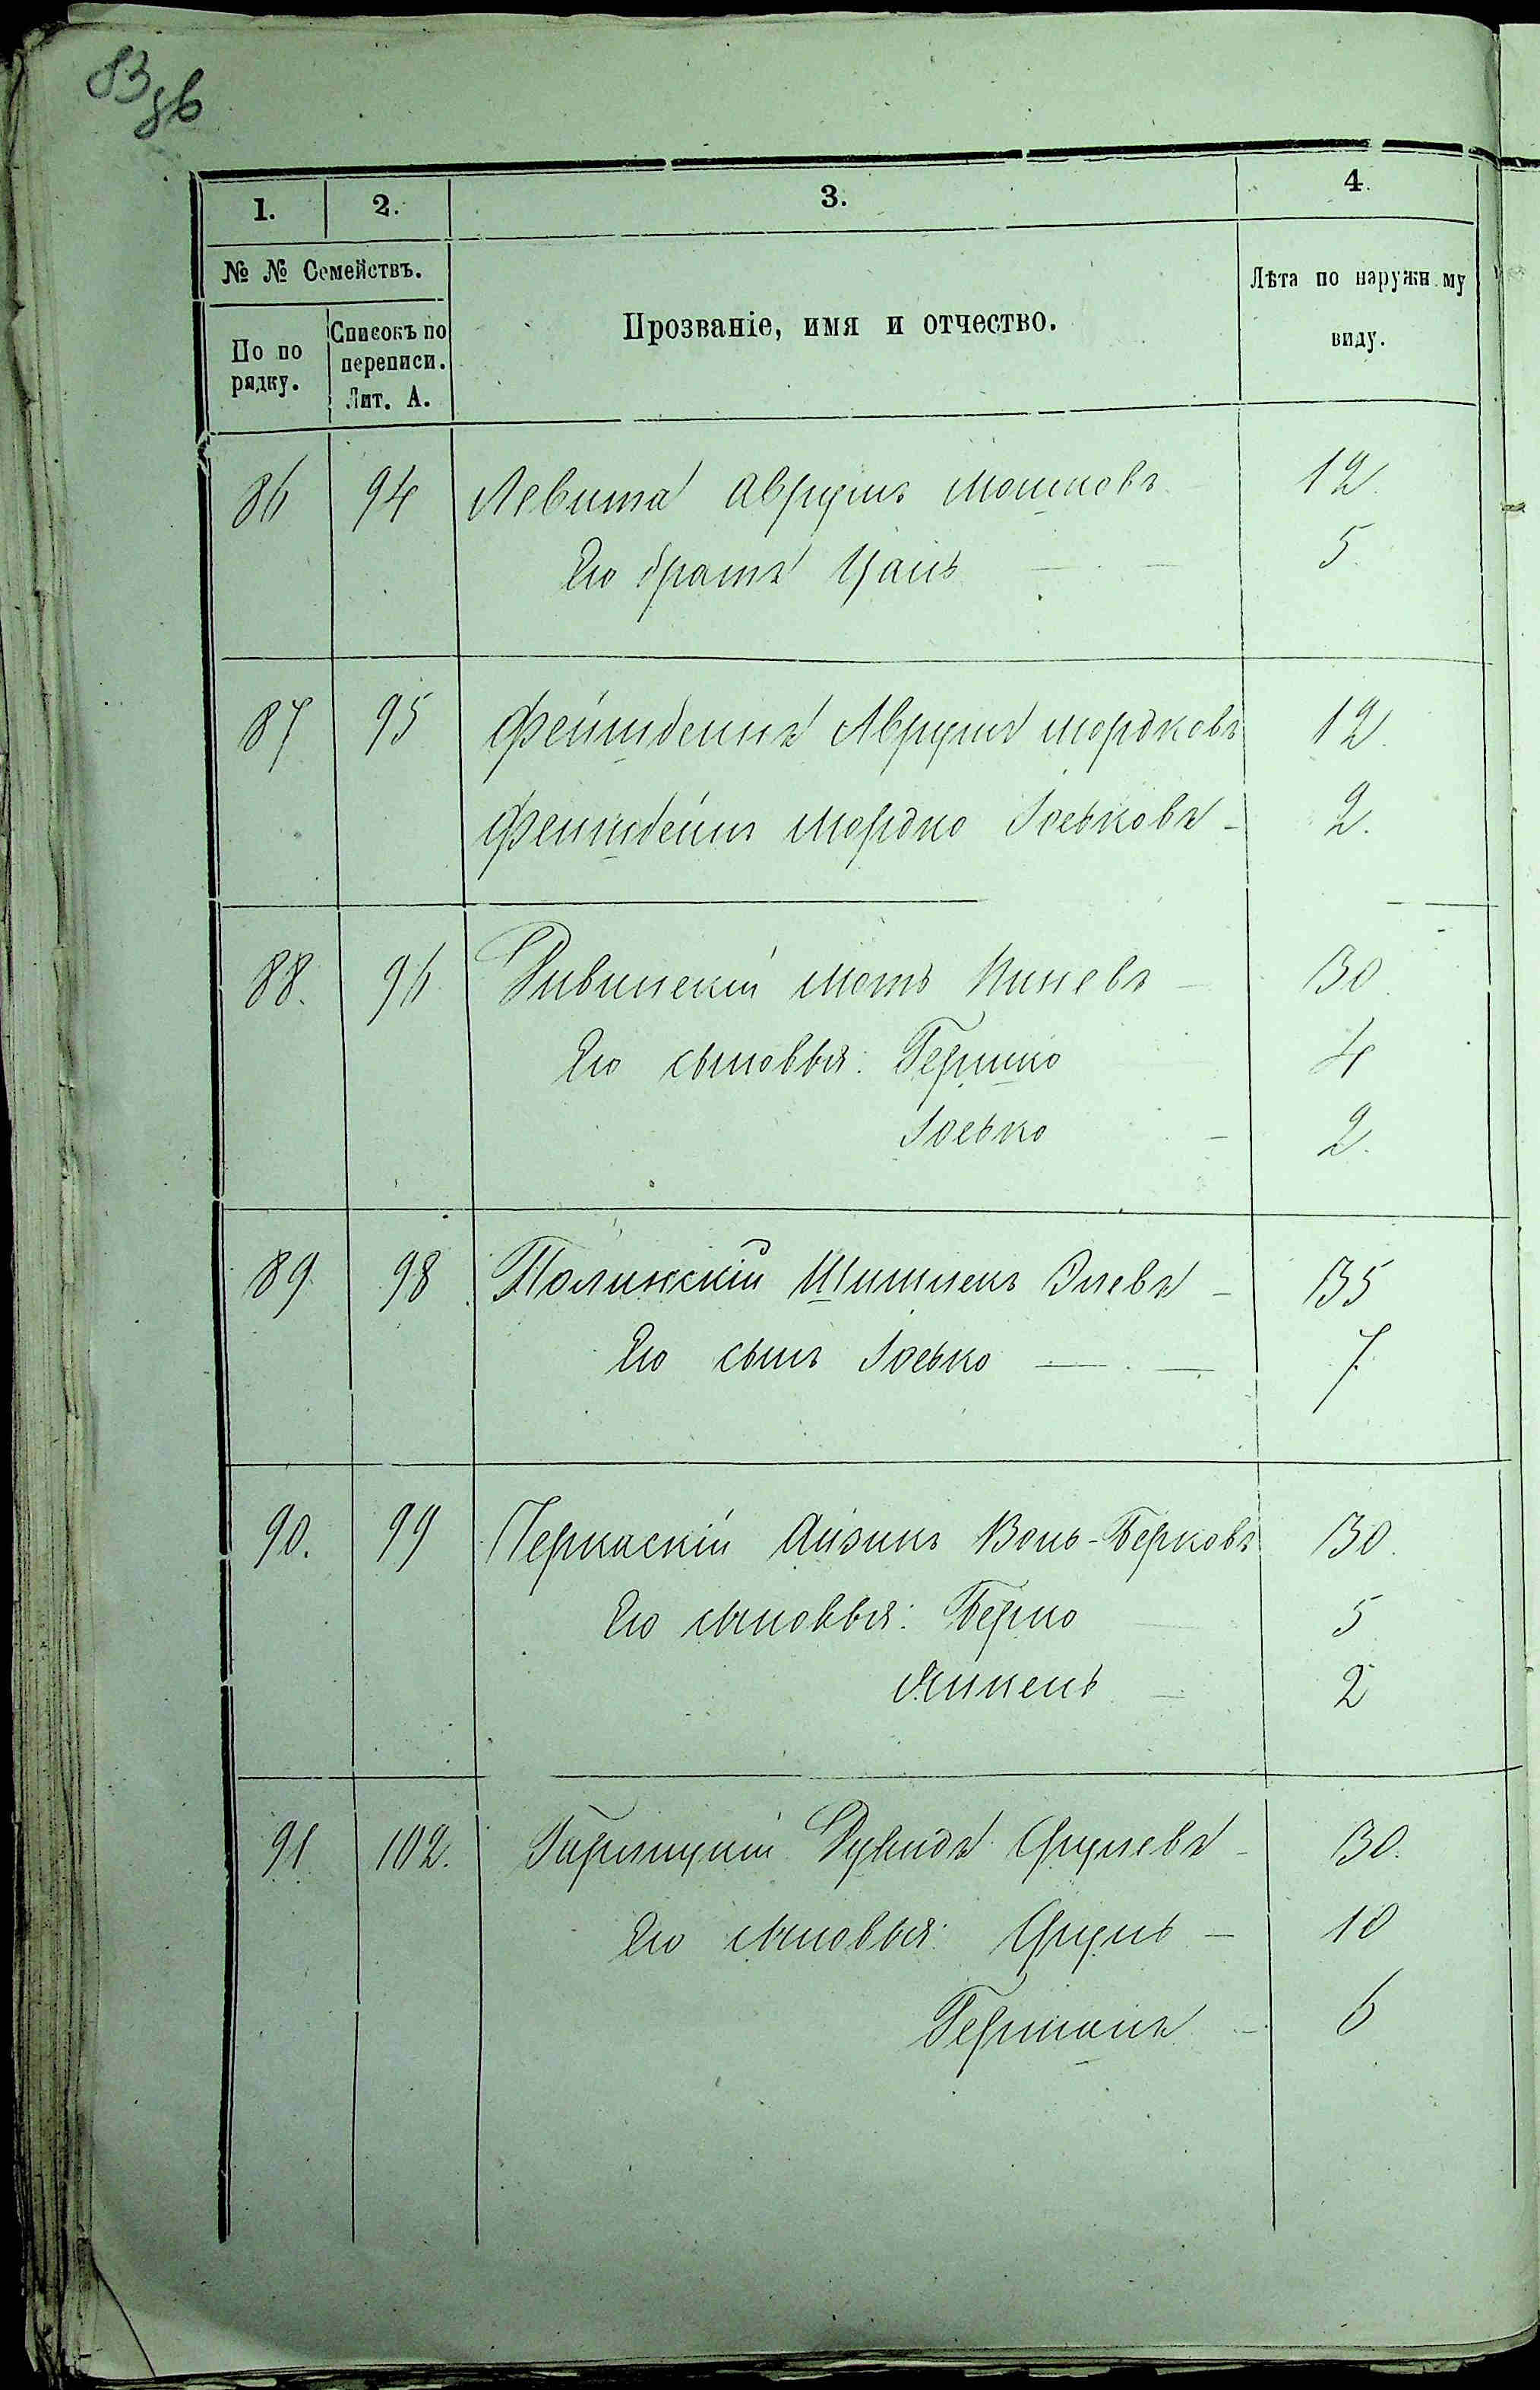 83 зв
1. 2. 3. 4.
№ № Семействъ.
По по рядку.
Списокъ по переписи. Лит. А.
Прозваніе, имя и отчество.
Лѣта по наружн му виду.
86 94 Левита Аврумъ Мошковъ 12.
Его братъ Цаль 5.
87 95 Фейнштейнъ Аврумъ Мордковъ 12.
Мордко Іоськовъ 2.
88. 96 Мотъ 30.
Его сыновья: Гершко 4
Іосько 2.
89 98 Полинскій Шлимень 35
Его сынъ Іосько 7.
90. 99 Черкаскій Айзикъ Волъ-Берковъ 30.
Его сыновья: Берко 5
Янкель 2
91 102. Дувидъ Срулевъ 30.
Его сыновья: Сруль 10
Германъ 6